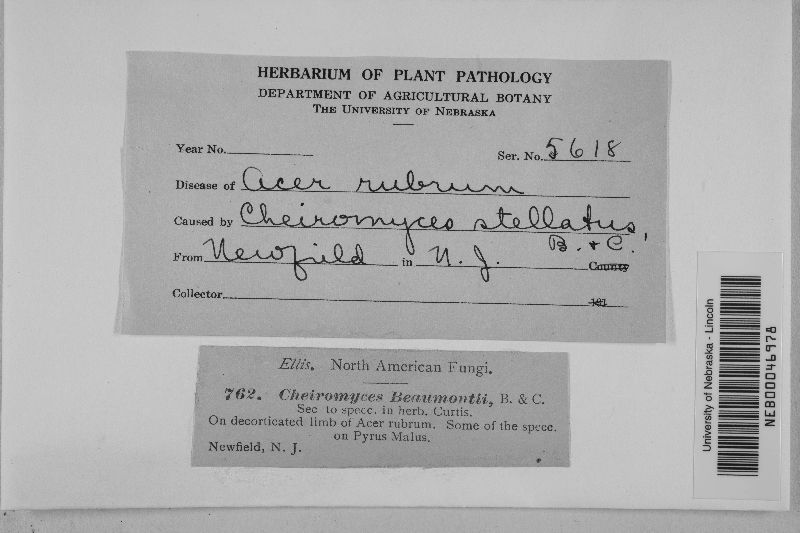 HERBARIUM OF PLANT PATHOLOGY
DEPARTMENT OF AGRICULTURAL BOTANY
THE UNIVERSITY OF NEBRASKA
Year No.
Ser. No. 5618
Disease of Acer rubrum
Caused by Cheiromyces stellatus,
B. & C.
From Newfield in N. J. County
Collector 191
Ellis. North American Fungi.
762. Cheiromyces Beaumontii, B. & C.
Sec to specc. in herb. Curtis.
On decorticated limb of Acer rubrum. Some of the specc.
on Pyrus Malus.
Newfield, N. J.
University of Nebraska - Lincoln
NEB00046978